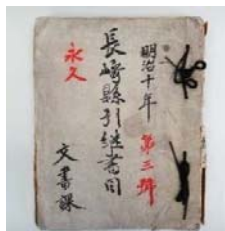 明治十年
第三號
長崎縣引継書目
永久
文書課